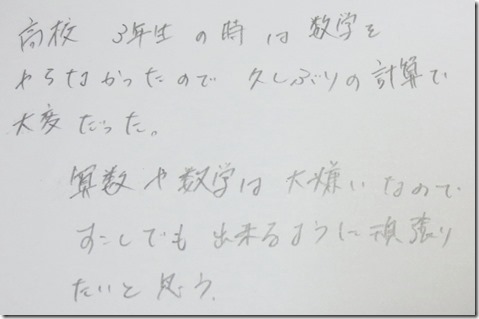 高校 3年生の時は数学を
やらなかったので 久しぶりの計算で
大変だった。
算数や数学は大嫌いなので
すこしでも出来るように頑張り
たいと思う。